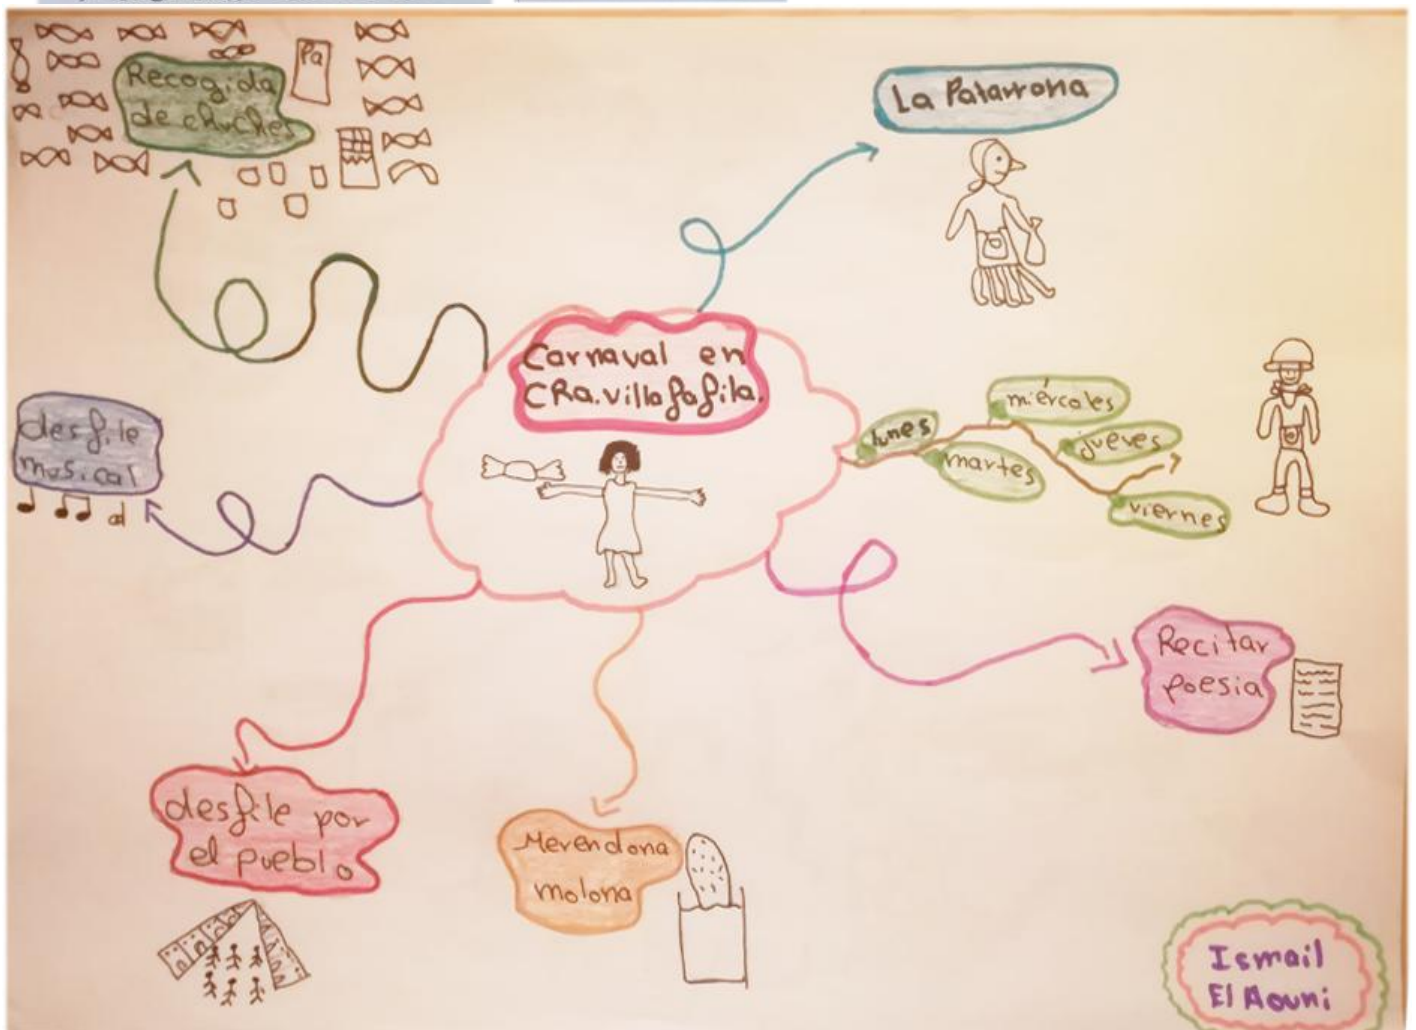 Recogida
de chuches
Pa
La Patarrona
Carnaval en
CRA.villafafila.
lunes
martes
miércoles
jueves
viernes
desfile
musical
Recitar
poesia
desfile por
el pueblo
Merendona
molona
Ismail
El Aouni